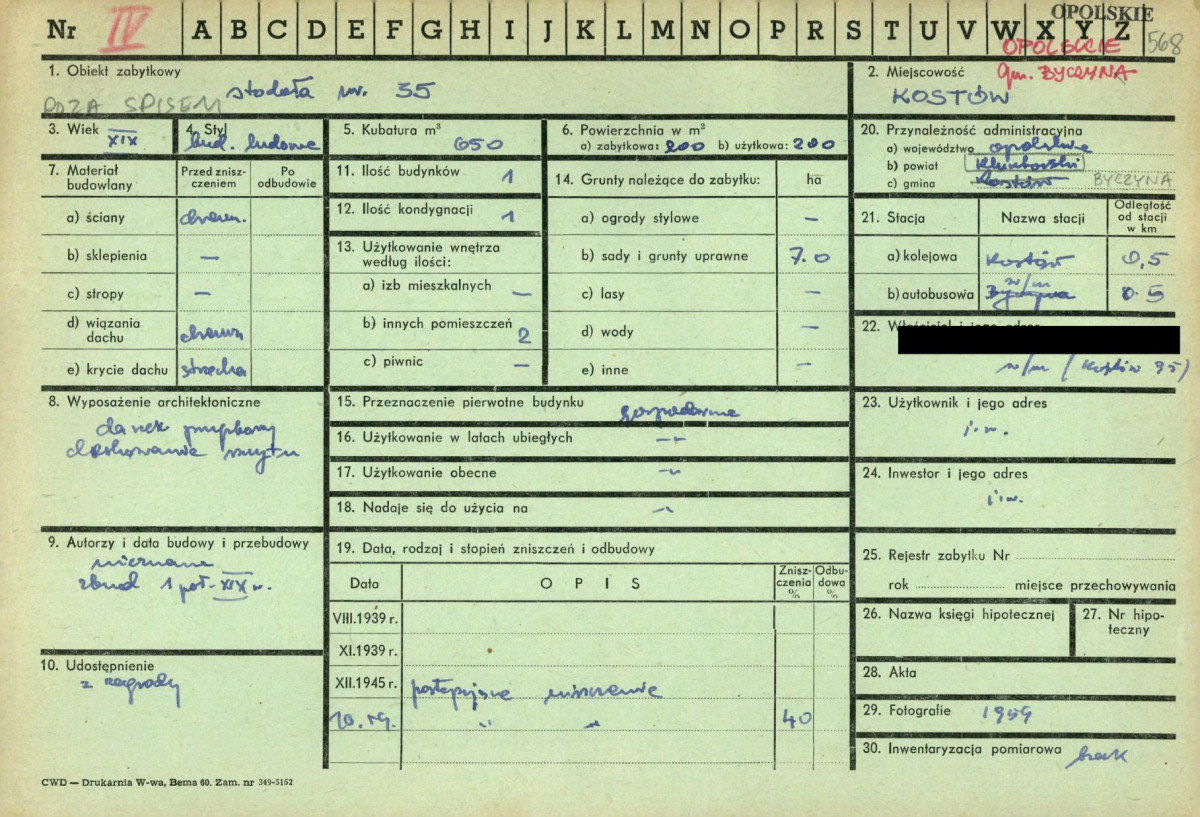 OPOLSKIE
Nr IV A B C D E F G H I J K L M N O P R S T U V W X Y Z 568
OPOLSKIE
1. Obiekt zabytkowy
stodoła nr. 35
POZA SPISEM
2. Miejscowość gm. BYCZYNA
KOSTÓW
3. Wiek XIX
4. Styl
bud. ludowe
5. Kubatura m³
650
6. Powierzchnia w m²
a) zabytkowa: 200 b) użytkowa: 200
7. Materiał budowlany
Przed zniszczeniem
Po odbudowie
a) ściany drewn.
b) sklepienia —
c) stropy —
d) wiązania dachu drewn.
e) krycie dachu strzecha
8. Wyposażenie architektoniczne
deskowanie szczytu
9. Autorzy i data budowy i przebudowy
nieznane
zbud 1 poł. XIX w.
10. Udostępnienie
z zagrody
11. Ilość budynków 1
12. Ilość kondygnacji 1
13. Użytkowanie wnętrza według ilości:
a) izb mieszkalnych —
b) innych pomieszczeń 2
c) piwnic —
14. Grunty należące do zabytku: ha
a) ogrody stylowe —
b) sady i grunty uprawne 7.0
c) lasy —
d) wody —
e) inne —
15. Przeznaczenie pierwotne budynku gospodarcze
16. Użytkowanie w latach ubiegłych -"-
17. Użytkowanie obecne -"-
18. Nadaje się do użycia na -"-
19. Data, rodzaj i stopień zniszczeń i odbudowy
Data OPIS Zniszczenia % Odbudowa %
VIII.1939 r.
XI.1939 r.
XII.1945 r. postępujące niszczenie
10.59. " " 40
20. Przynależność administracyjna
a) województwo opolskie
b) powiat Kluczborski
c) gmina Kostów BYCZYNA
21. Stacja Nazwa stacji Odległość od stacji w km
a) kolejowa Kostów 0,5
b) autobusowa w/m Byczyna 0.5
22. Właściciel i jego adres
w/m (Kostów 35)
23. Użytkownik i jego adres
j.w.
24. Inwestor i jego adres
j.w.
25. Rejestr zabytku Nr
rok miejsce przechowywania
26. Nazwa księgi hipotecznej
27. Nr hipoteczny
28. Akta
29. Fotografie 1959
30. Inwentaryzacja pomiarowa brak
CWD — Drukarnia W-wa, Bema 60. Zam. nr 349-5162